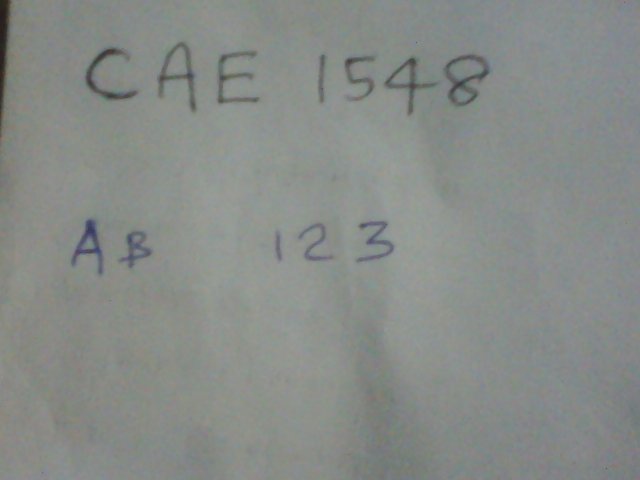 CAE 1548
AB 123